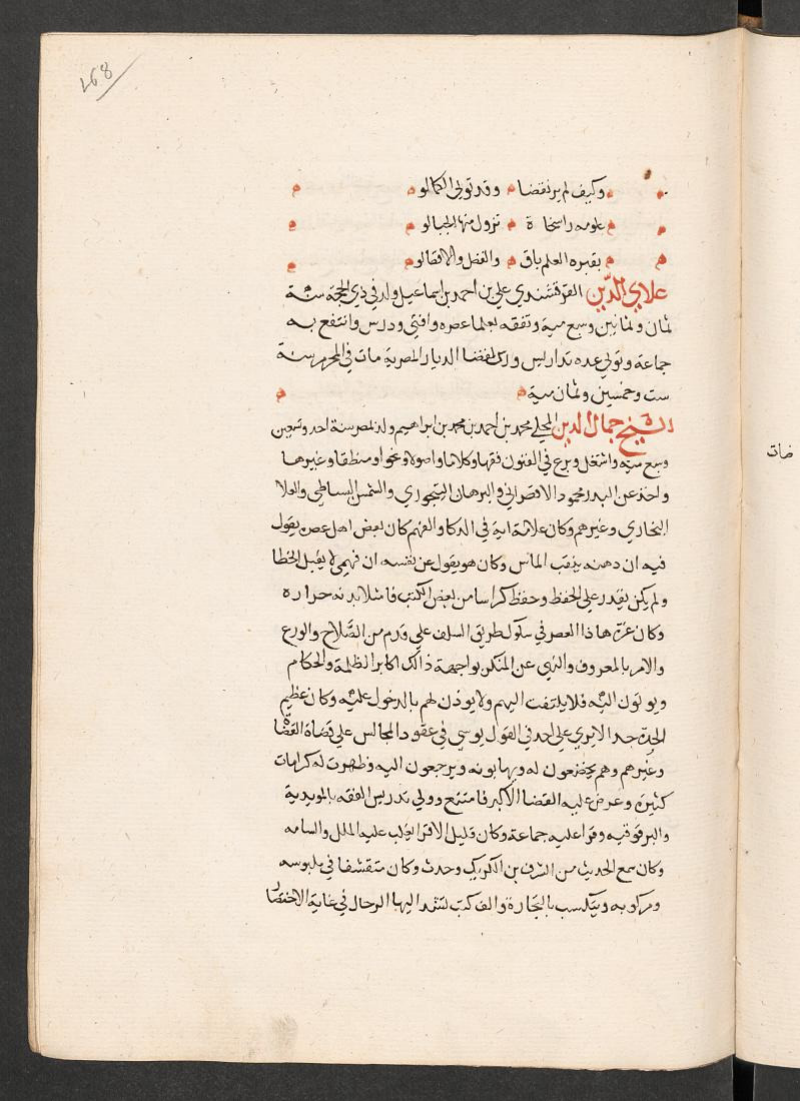 268
وكيف لم يرنقضا وقد تولى الكمالو
علومه راسخا ة تزول منها الجبالو
بقبره العلم باق والفضل والافضالو
علاي الدين القرقشندي علي بن احمد بن اسماعيل ولد في ذي الحجة سنة
ثمان وثمانين وسبع مية وتفقه بعلما عصره وافتي ودرس وانتفع به
جماعة وتولي عده تداريس ورى لقضا الديار المصرية مات في المحرم سنة
ست وخمسين وثمان مية
الشيخ جمال الدين المحلي محمد بن احمد بن محمد بن ابراهيم ولد بمصر سنة احد وتسعين
وسبع ميه واشتغل وبرع في الفنون فقها وكلاما واصولا ونحوا ومنطقا وغيرها
واخذ عن البدر محمود الاقصراني والبرهان البيجوري والشمس البساطي والعلا
البخاري وغيرهم وكان علامة اية في الدكا والفهم كان بعض اهل عصره يقول
فيه ان دهنه يثقب الماس وكان هو يقول عن نفسه ان فهمي لا يقبل الخطا
ولم يكن يقدر علي الحفظ وحفظ كراسا من بعض الكتب فامتلا بدنه حراره
وكان غرة هاذا العصر في سلوك طريق السلف علي قدم من الصلاح والورع
والامر بالمعروف والنهي عن المنكر بواجهة ذالك اكابر الظلمة والحكام
وياتون اليه فلا يلتفت اليهم ولا يوذن لهم بالدخول عليه وكان عظيم
الحدة جدا لا يري علي احد في القول يوسي في عقود المجالس علي قضاة القضا
وغيرهم وهم يخضعون له ويهابونه ويرجعون اليه وظهرت له كرامات
كثيرة وعرض عليه القضا الاكبر فامتنع وولي تدريس الفقه بالمويدية
والبرقوقيه وقرا عليه جماعة وكان قليل الاقرا يغلب عليه الملل والسامه
وكان سمع الحديث من الشرف بن الكويك وحدث وكان متقشفا في ملبوسه
ومركوبه ويتكسب بالتجارة والف كتب تشد اليها الرحال في غاية الاختصار